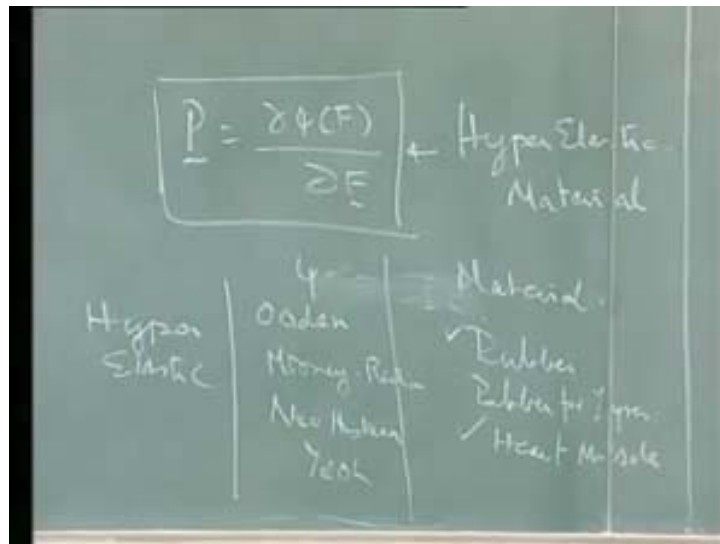 P = ∂ψ(F) / ∂F ← Hyper Elastic
Material
ψ Material.
Hyper Elastic
Ogden
Mooney-Rivlin
Neo Hookean
Yeoh
✓ Rubber
Rubber for Tyres.
✓ Heart Muscle